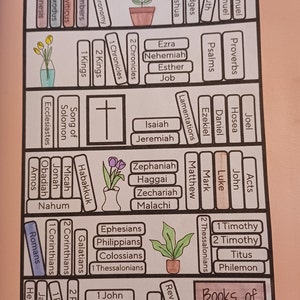 1 Kings
2 Kings
1 Chronicles
2 Chronicles
Ezra
Nehemiah
Esther
Job
Psalms
Proverbs
Ecclesiastes
Song of
Solomon
Isaiah
Jeremiah
Lamentations
Ezekiel
Daniel
Hosea
Joel
Amos
Obadiah
Jonah
Micah
Nahum
Habakkuk
Zephaniah
Haggai
Zechariah
Malachi
Matthew
Mark
Luke
John
Acts
Romans
1 Corinthians
2 Corinthians
Galatians
Ephesians
Philippians
Colossians
1 Thessalonians
2 Thessalonians
1 Timothy
2 Timothy
Titus
Philemon
1 John
Books of